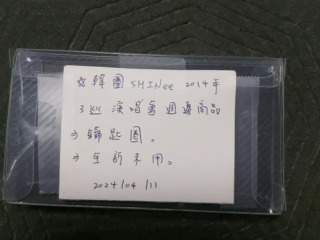 ☆韓團 SHINee 2014年
3巡演唱會週邊商品
⇒鑰匙圈。
⇒全新未用。
2024/04/11